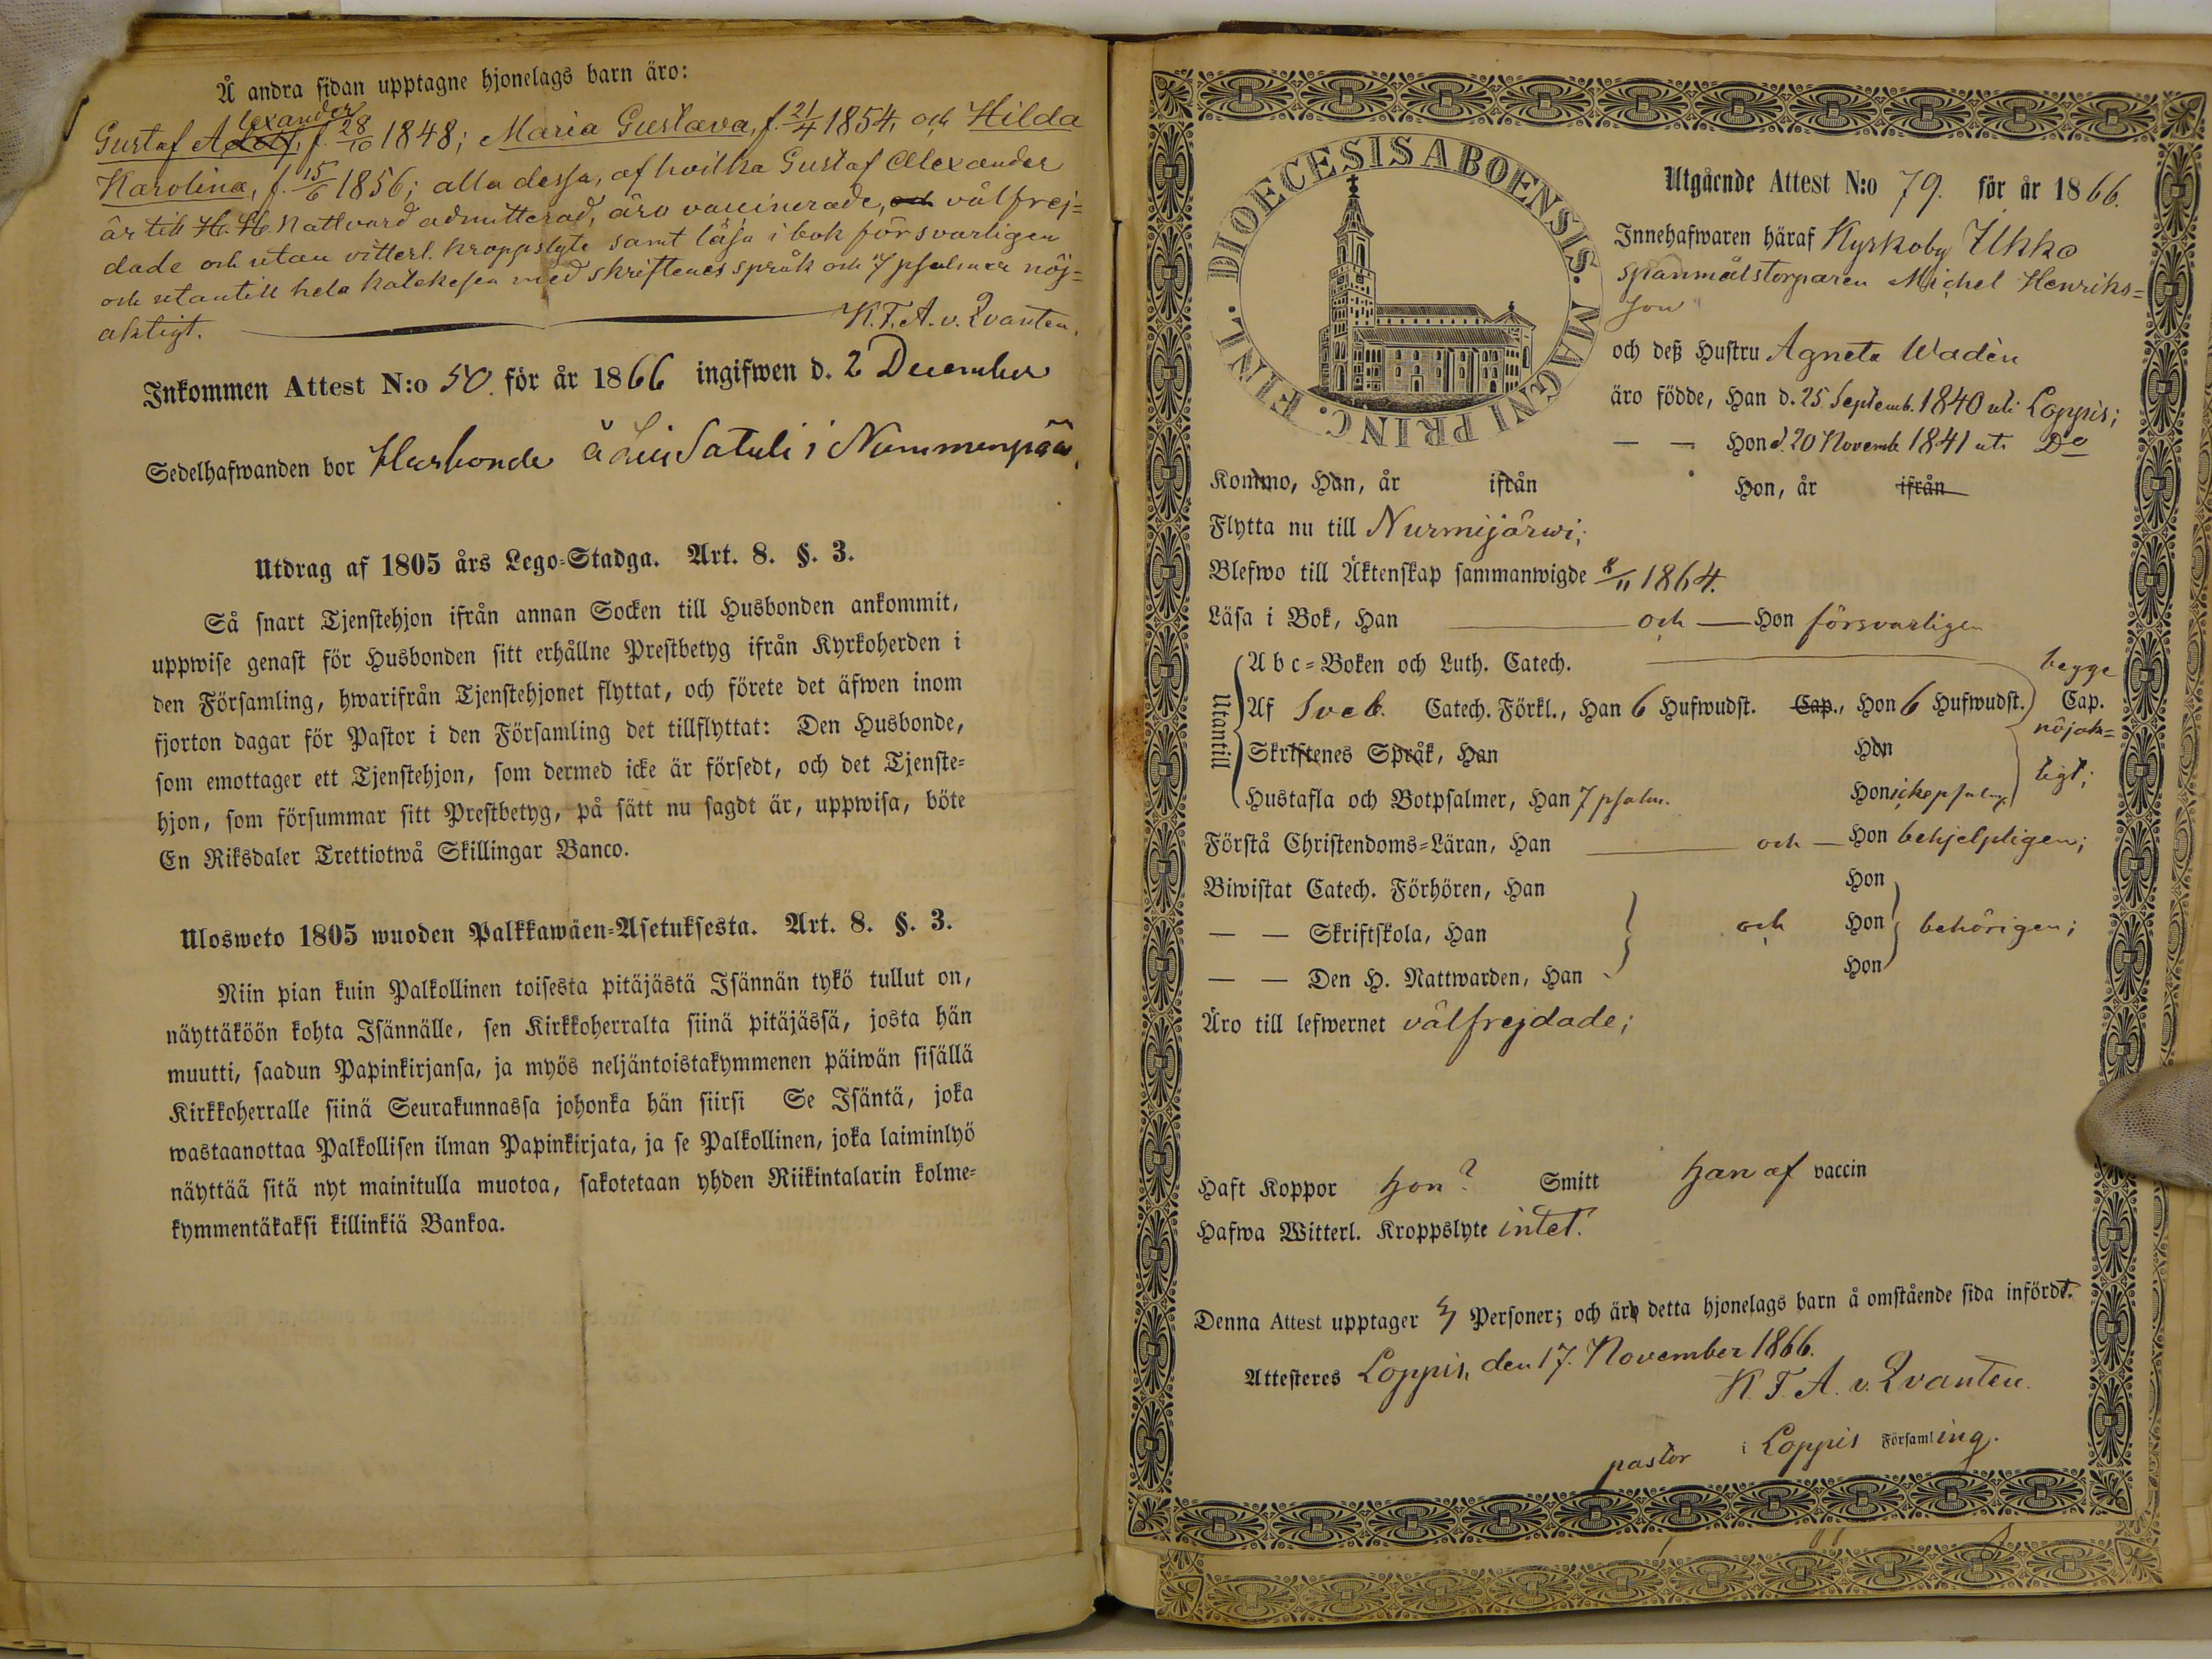 Å andra sidan upptagne hjonelags barn äro:
lexander
Gustaf Adolf, f. 28/10 1848; Maria Gustava, f. 21/4 1854, och Hilda
Karolina, f. 15/6 1856; alla dessa, af hvilka Gustaf Alexander
är till H. H. Nattvard admitterad, äro vaccinerade, och välfrej=
dade och utan vitterl. kroppslyte samt läsa i bok försvarligen
och utantill hela katekesen med skriftenes språk och 7 psalmer nöj=
aktigt. K. F. A. v. Qvanten.
Inkommen Attest N:o 50. för år 1866 ingifwen d. 2 December
Sedelhafwanden bor Husbonde å Satuli i Nummenpää,
Utdrag af 1805 års Lego-Stadga. Art. 8. §. 3.
Så snart Tjenstehjon ifrån annan Socken till Husbonden ankommit,
uppwise genast för Husbonden sitt erhållne Prestbetyg ifrån Kyrkoherden i
den Församling, hwarifrån Tjenstehjonet flyttat, och förete det äfwen inom
fjorton dagar för Pastor i den Församling det tillflyttat: Den Husbonde,
som emottager ett Tjenstehjon, som dermed icke är försedt, och det Tjenste=
hjon, som försummar sitt Prestbetyg, på sätt nu sagdt är, uppwisa, böte
En Riksdaler Trettiotwå Skillingar Banco.
Ulosweto 1805 wuoden Palkkawäen-Asetuksesta. Art. 8. §. 3.
Niin pian kuin Palkollinen toisesta pitäjästä Isännän tykö tullut on,
näyttäköön kohta Isännälle, sen Kirkkoherralta siinä pitäjässä, josta hän
muutti, saadun Papinkirjansa, ja myös neljäntoistakymmenen päiwän sisällä
Kirkkoherralle siinä Seurakunnassa johonka hän siirsi Se Isäntä, joka
wastaanottaa Palkollisen ilman Papinkirjata, ja se Palkollinen, joka laiminlyö
näyttää sitä nyt mainitulla muotoa, sakotetaan yhden Riikintalarin kolme=
kymmentäkaksi killinkiä Bankoa.
DIOECESIS ABOENSIS. MAGNI PRINC. FINL.
Utgående Attest N:o 79. för år 1866.
Innehafwaren häraf Kyrkoby Ukko
spanmålstorparen Michel Henriks=
son
och deß Hustru Agneta Wadèn
äro födde, Han d. 25 Septemb. 1840 uti Loppis;
— — Hon d. 20 Novemb 1841 uti Do
Kommo, Han, år ifrån Hon, år ifrån
Flytta nu till Nurmijärwi;
Blefwo till Äktenskap sammanwigde 8/11 1864.
Läsa i Bok, Han och Hon försvarligen
Utantill
A b c=Boken och Luth. Catech. begge
Af Sveb. Catech. Förkl., Han 6 Hufwudst. Cap., Hon 6 Hufwudst. Cap.
nöjak=
Skriftenes Språk, Han Hon
tigt;
Hustafla och Botpsalmer, Han 7 psalm. Hon icke psalm.
Förstå Christendoms=Läran, Han och Hon behjelpligen;
Biwistat Catech. Förhören, Han Hon
— — Skriftskola, Han och Hon behörigen;
— — Den H. Nattwarden, Han Hon
Äro till lefwernet välfrejdade;
Haft Koppor hon? Smitt han af vaccin
Hafwa Witterl. Kroppslyte intet.
Denna Attest upptager Personer; och äro detta hjonelags barn å omstående sida införde.
Attesteres Loppis, den 17. November 1866.
K. F. A. v. Qvanten.
pastor i Loppis Församling.